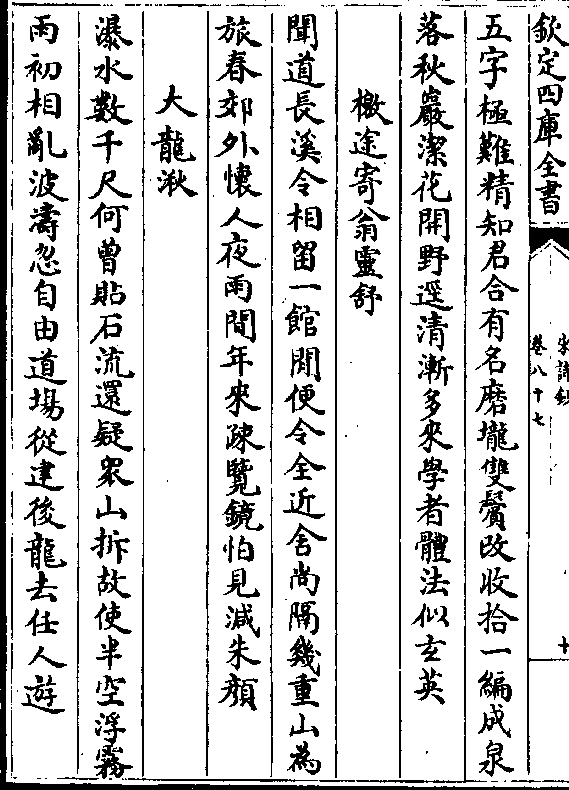 欽定四庫全書
宋詩鈔
卷八十七
十
五字極難精知君合有名磨壠雙鬢改收拾一編成泉
落秋巖潔花開野逕清漸多來學者體法似玄英
檄途寄翁靈舒
聞道長溪令相留一館閒便令全近舍尚隔幾重山為
旅春郊外懷人夜雨間年來疎覽鏡怕見減朱顏
大龍湫
瀑水數千尺何曾貼石流還疑衆山拆故使半空浮霧
雨初相亂波濤忽自由道場從建後龍去任人遊